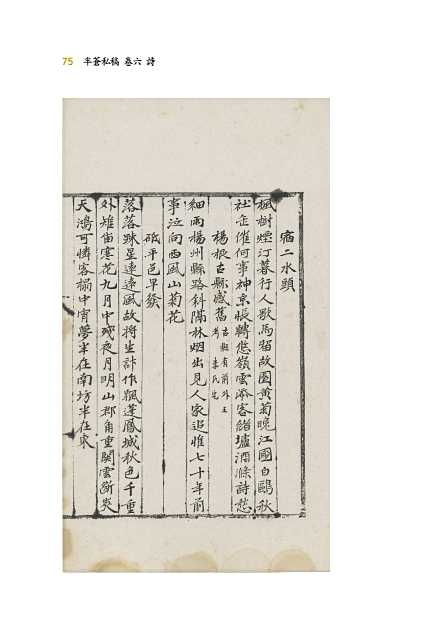 75 半蒼私稿 卷六 詩
宿二水頭
楓樹煙汀暮行人歌馬 故園黃菊晚江國白鷗秋
社 催何事神京悵轉悠嶺雲 客緖壚酒滌詩愁
楊根古縣感舊 古縣有前外王考李氏宅
細雨楊州縣路斜隔林烟出見人家追惟七十年前
事泣向西風山菊花
砥平邑早發
落落踈星遠遠風故將生計作飄蓬鳳城秋色千重
外雉 寒花九月中殘夜月明山郡角重關雲斷
天鴻可憐客榻中宵夢半在南坊半在東